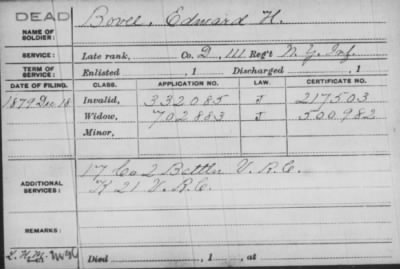 DEAD
NAME OF SOLDIER: Bovee, Edward H.
SERVICE: Late rank, Co. D, 111 Reg't N. Y. Inf.
TERM OF SERVICE: Enlisted , 1 Discharged , 1
DATE OF FILING. CLASS. APPLICATION NO. LAW. CERTIFICATE NO.
1879 Dec 18 Invalid, 332085 J 217503
Widow, 702883 J 500982
Minor,
ADDITIONAL SERVICES: 17 Co 2 Battln V. R. C.
K 21 V. R. C.
REMARKS:
Died , 1 , at